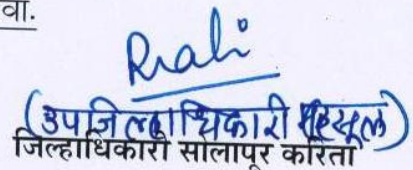 वा.
(उपजिल्हाधिकारी महसूल)
जिल्हाधिकारी सोलापूर करिता